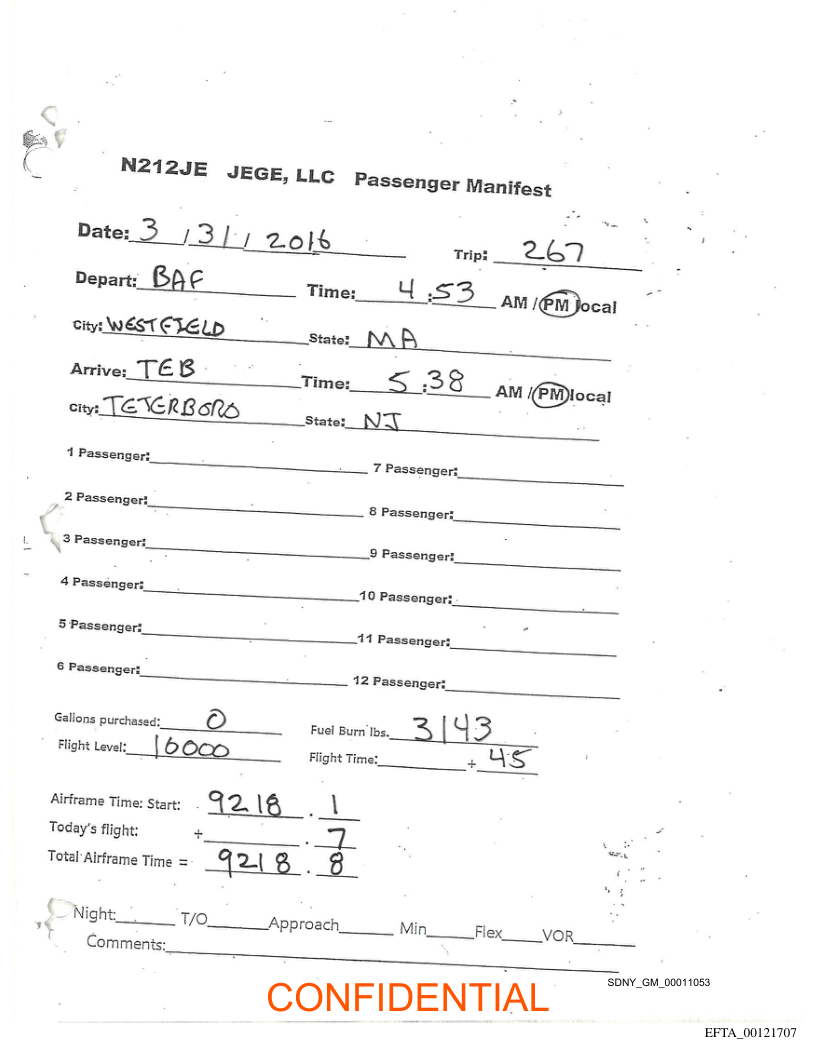 N212JE JEGE, LLC Passenger Manifest
Date: 3 / 31 / 2016 Trip: 267
Depart: BAF Time: 4:53 AM / PM local
City: WESTFIELD State: MA
Arrive: TEB Time: 5:38 AM / PM local
City: TETERBORO State: NJ
1 Passenger: 7 Passenger:
2 Passenger: 8 Passenger:
3 Passenger: 9 Passenger:
4 Passenger: 10 Passenger:
5 Passenger: 11 Passenger:
6 Passenger: 12 Passenger:
Gallons purchased: 0 Fuel Burn lbs. 3143
Flight Level: 16000 Flight Time: + 45
Airframe Time: Start: 9218 . 1
Today's flight: + . 7
Total Airframe Time = 9218 . 8
Night: T/O Approach Min Flex VOR
Comments:
SDNY_GM_00011053
CONFIDENTIAL
EFTA_00121707